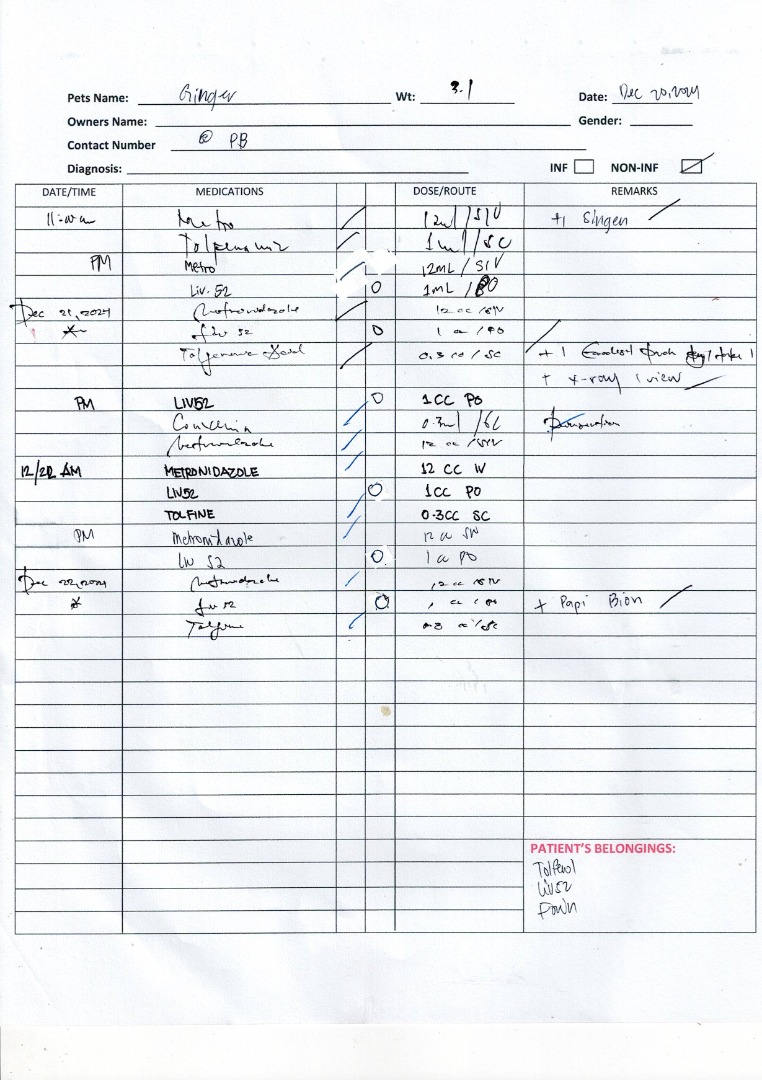 Pets Name: Ginger Wt: 3.1 Date: Dec 20, 2024
Owners Name: Gender:
Contact Number @ PB
Diagnosis: INF NON-INF
DATE/TIME MEDICATIONS DOSE/ROUTE REMARKS
Metro 12ml / SIV +1 Singen
1ml / SC
PM Metro 12mL / SIV
Liv. 52 1mL / PO
Dec 21, 2024 Metronidazole 12 cc / SIV
Liv 52 1 cc / PO
0.3 cc / SC + 1
+ x-ray 1 view
PM LIV52 1CC PO
0.3ml / SC
Metronidazole 12 cc / SIV
12/22 AM METRONIDAZOLE 12 CC IV
LIV52 1CC PO
TOLFINE 0.3CC SC
PM Metronidazole 12 cc SIV
LIV 52 1 cc PO
Dec 22, 2024 Metronidazole 12 cc SIV
Liv 52 cc / PO + Papi Bion
Tolfine 0.3 cc / SC
PATIENT'S BELONGINGS:
Tolfenol
LIV52